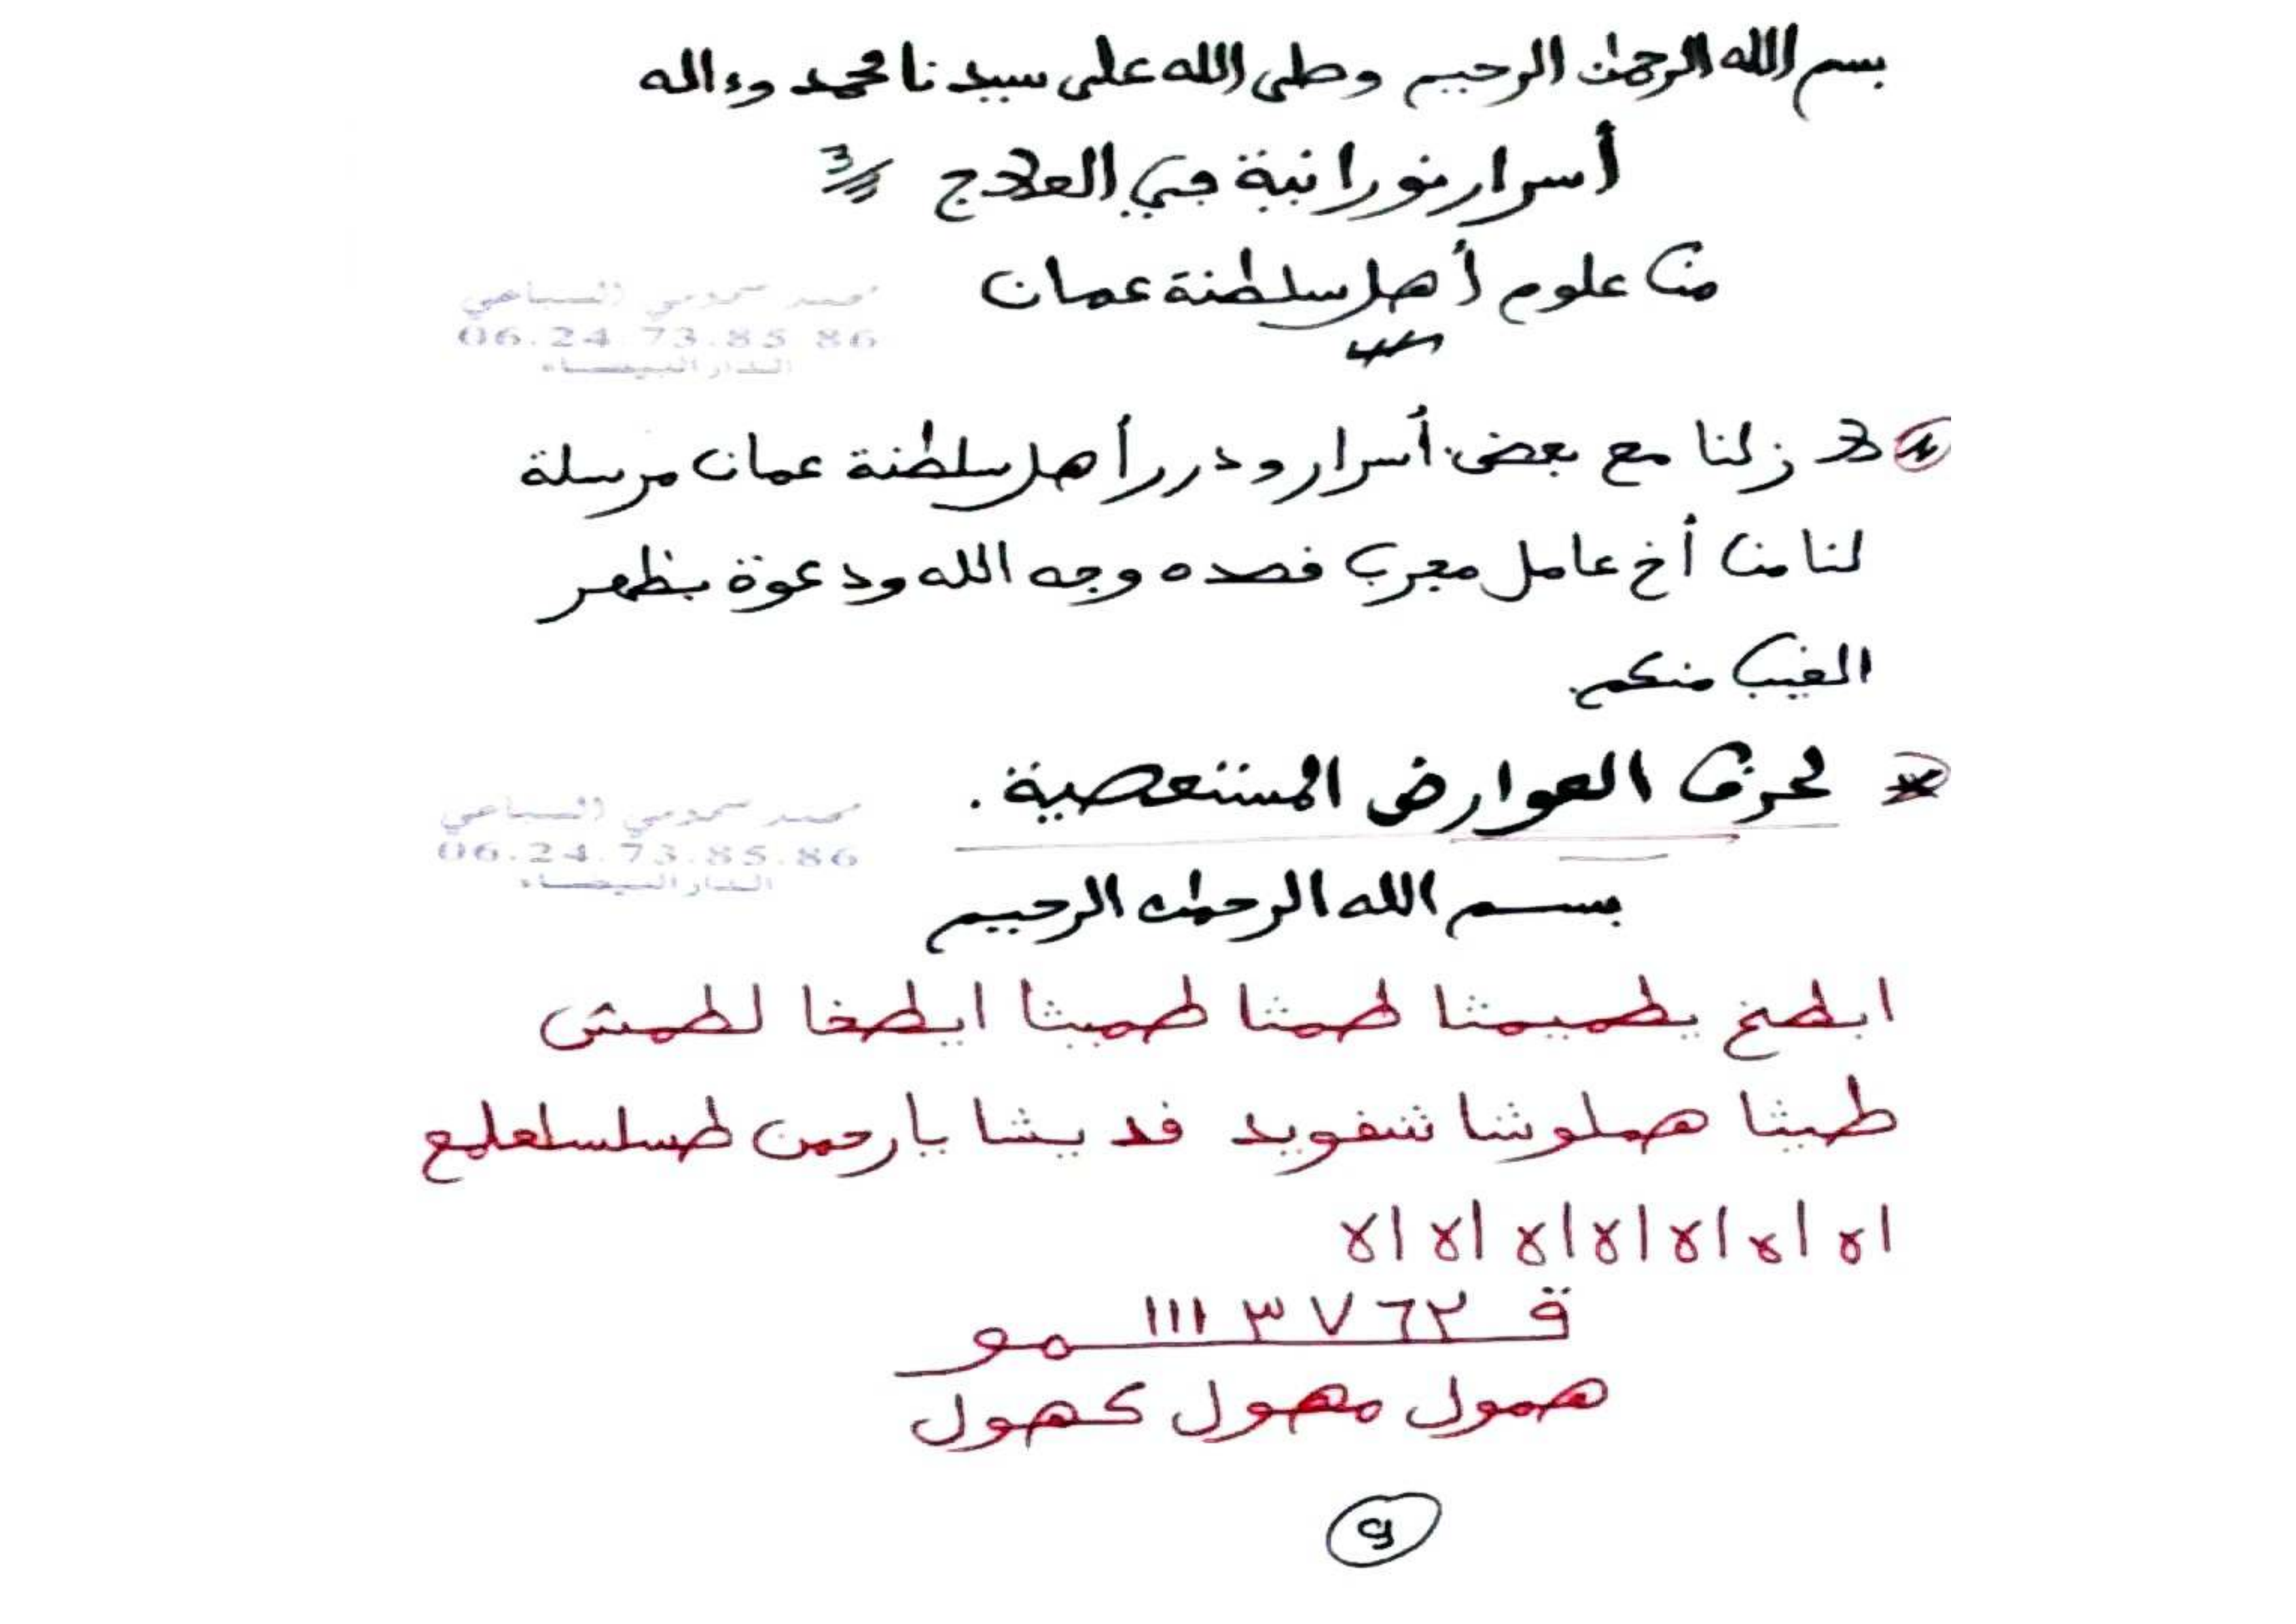 بسم الله الرحمن الرحيم وصلى الله على سيدنا محمد وءاله
أسرار نورانية في العلاج 3
من علوم أهل سلطنة عمان
محمد السباعي
06.24.73.85.86
الدار البيضاء
لا زلنا مع بعض أسرار ودرر أهل سلطنة عمان مرسلة
لنا من أخ عامل مجرب قصده وجه الله ودعوة بظهر
الغيب منكم.
لحرق العوارض المستعصية.
محمد السباعي
06.24.73.85.86
الدار البيضاء
بسم الله الرحمن الرحيم
ابطخ يطميمثا طمثا طمبثا ايطخا لطمش
طبثا هملوشا شفويد فديشا يارحمن طسلسلعلمع
اه اه اه اه اه اه اه
ق ٢٦٧٣١١١ مو
همول مهول كهول
و